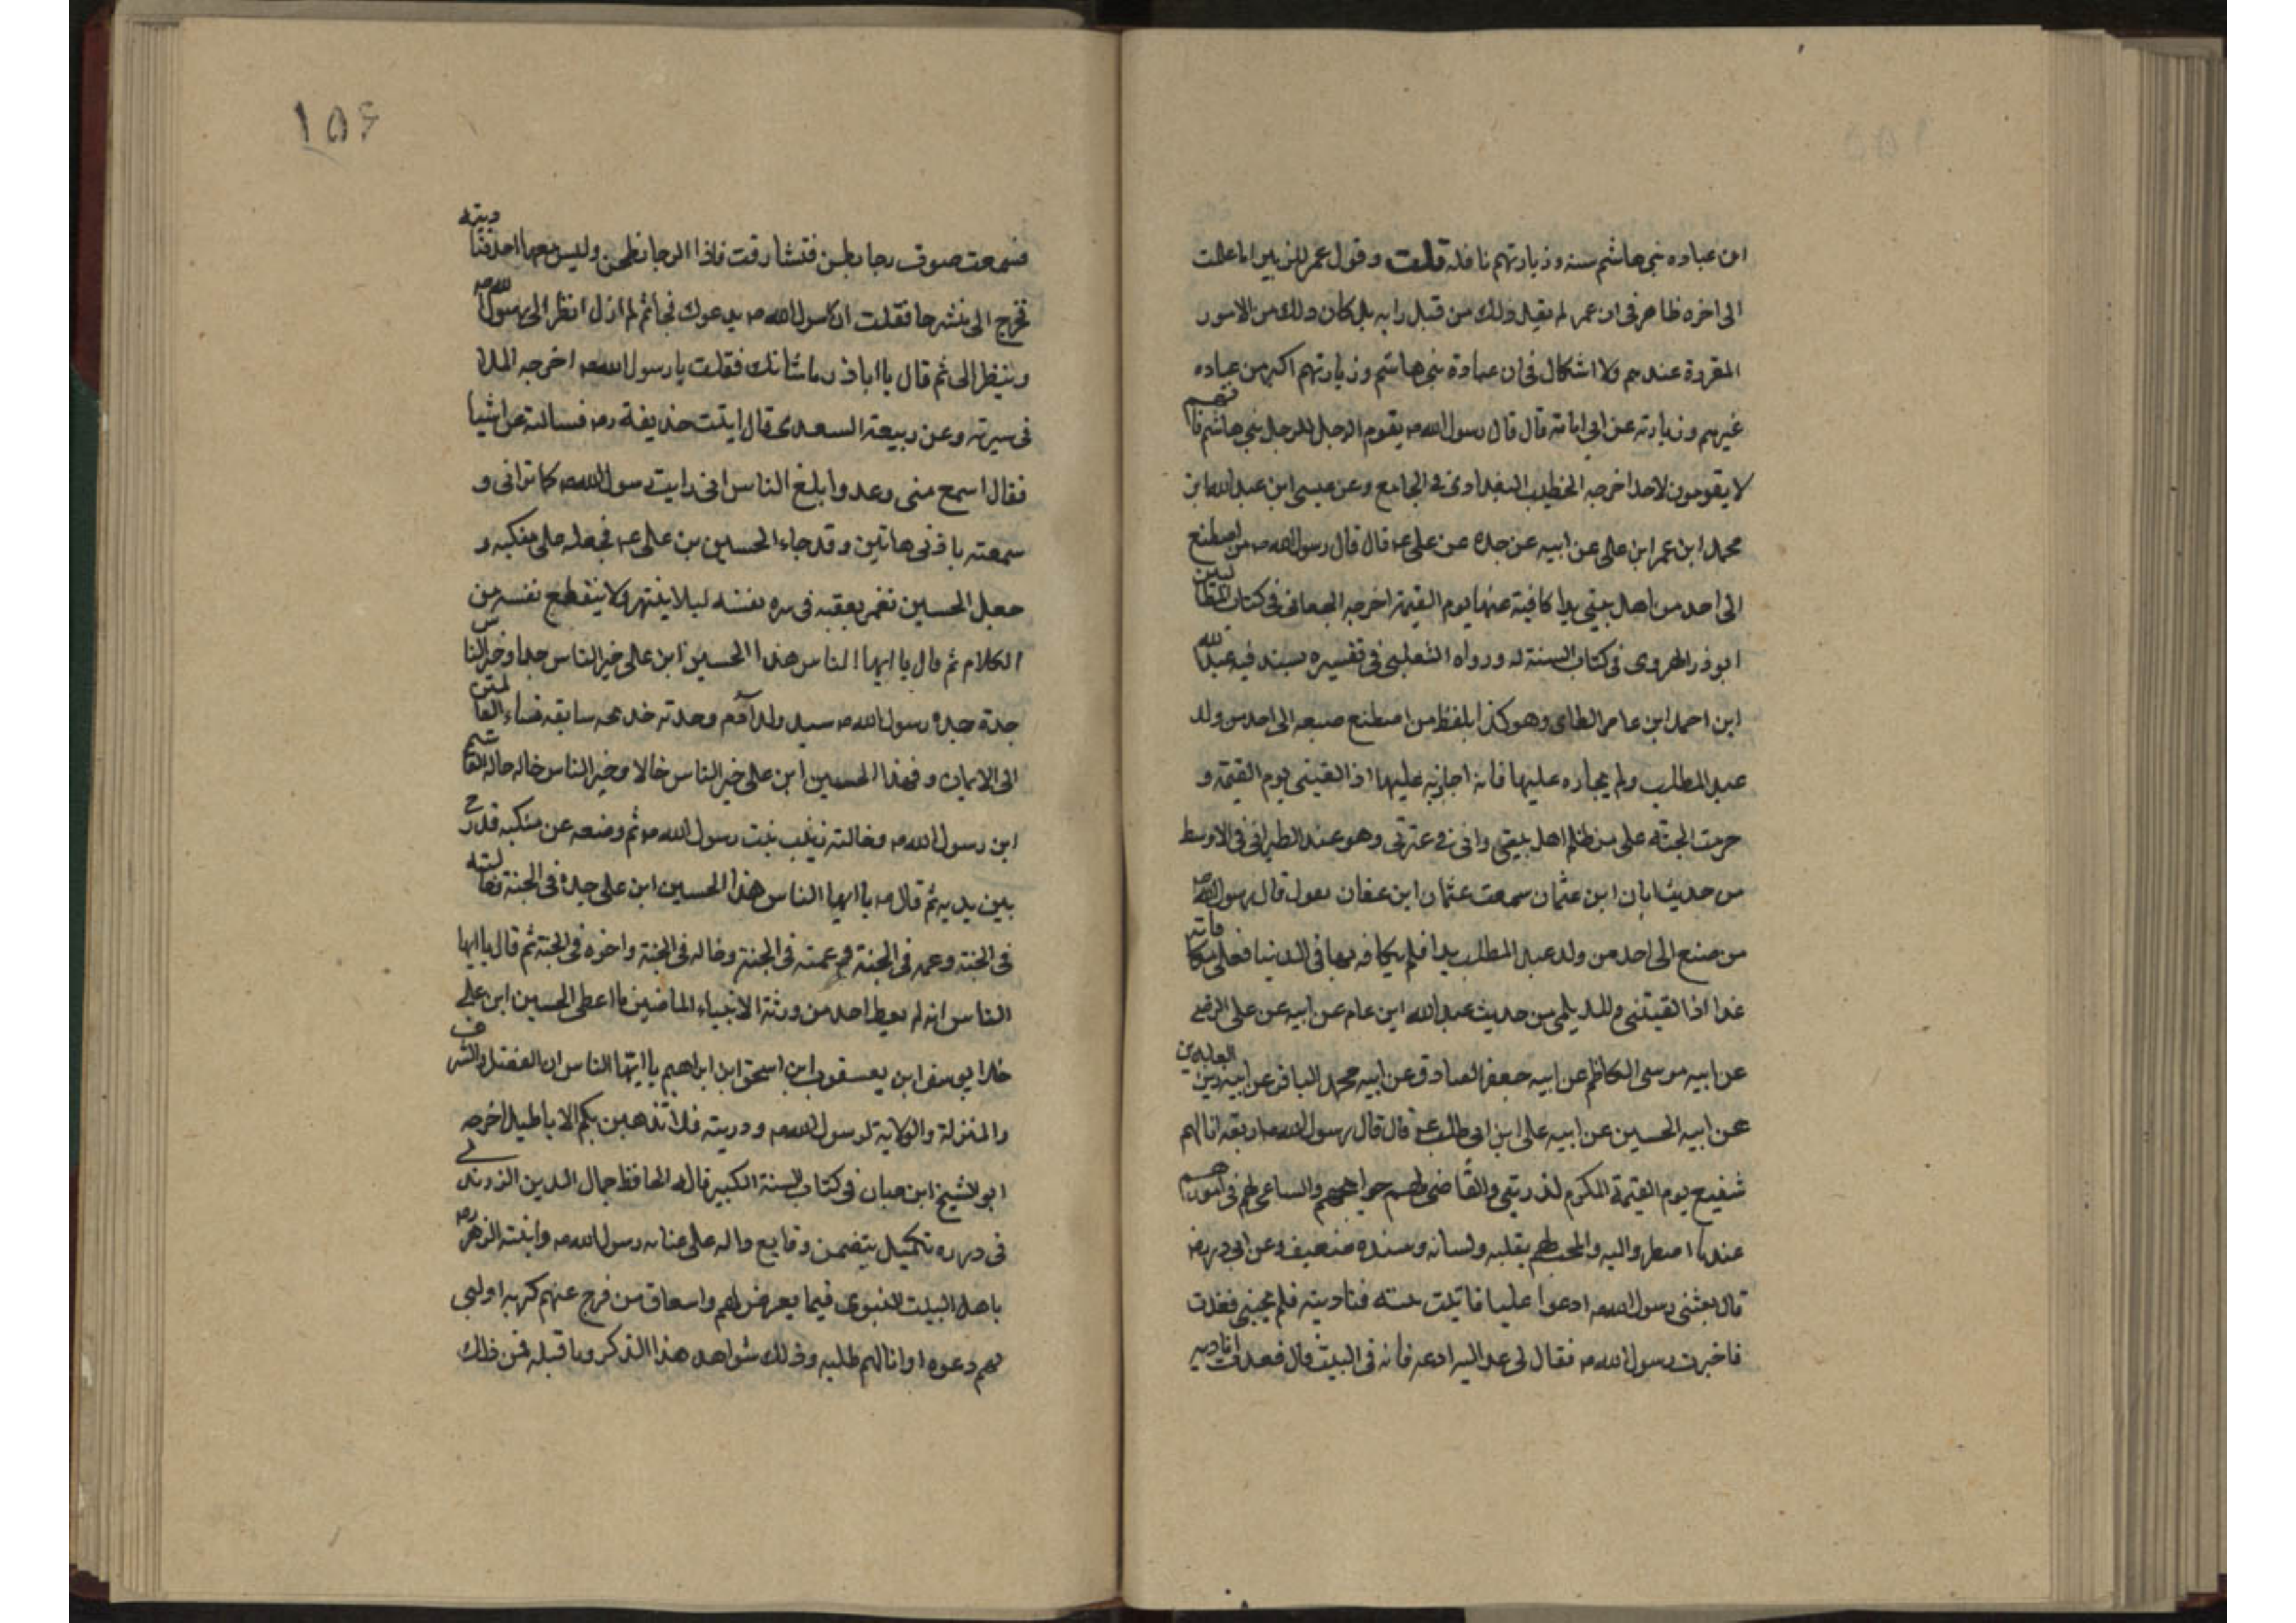 ان عباده بنى هاشم سنه وزيارتهم نافله قلت وقول عمر للزبير اما علمت
الى اخره ظاهر فى ان عمر لم يقيل ذلك من قبل رايه بل كان ذلك من الامور
المقررة عندهم ولا اشكال فى ان عبادة بنى هاشم وزيارتهم اكبر من عباده
غيرهم وزيارته عن ابى امامة قال قال رسول الله ص يقوم الرجل للرجل بنى هاشم فانهم
لا يقومون لاحد اخرجه الخطيب البغدادى فى الجامع وعن عيسى ابن عبد الله ابن
محمد ابن عمر ابن على عن ابيه عن جده عن على ع قال قال رسول الله ص من اصطنع
الى احد من اهل بيتى يدا كافيته عنها يوم القيمة اخرجه الجعابى فى كتاب الطالبين
ابوذر الهروى فى كتاب السنة له ورواه الثعلبى فى تفسيره بسند فيه عبد الله
ابن احمد ابن عامر الطاى وهو كذا بلفظ من اصطنع صنيعه الى احد من ولد
عبد المطلب ولم يجازه عليها فانه اجازيه عليها اذا لقينى يوم القيمة و
حرمت الجنة على من ظلم اهل بيتى واذانى فى عترتى وهو عند الطبرانى فى الاوسط
من حديث ابان ابن عثمان سمعت عثمان ابن عفان يقول قال رسول الله ص
من صنع الى احد من ولد عبد المطلب يدا فلم يكافه بها فى الدنيا فعلى مكافاته
غدا اذا لقيتنى وللديلمى من حديث عبد الله ابن عامر عن ابيه عن على الرضى
عن ابيه موسى الكاظم عن ابيه جعفر الصادق عن ابيه محمد الباقر عن ابيه زين العابدين
عن ابيه الحسين عن ابيه على ابن ابى طالب ع قال قال رسول الله ص اربعة انا لهم
شفيع يوم القيمة المكرم لذريتى والقاضى لهم حوايجهم والساعى لهم فى امورهم
عند ما اضطروا اليه والمحب لهم بقلبه ولسانه وسنده ضعيف وعن ابى ذر رض
قال بعثنى رسول الله ص ادعوا عليا فاتيت بيته فناديته فلم يجبنى فعدت
فاخبرت رسول الله ص فقال لى عد اليه ادعه فانه فى البيت قال فعدت اناديه
١٥٦
فسمعت صوت رحا يطحن فتشارفت فاذا الرحا تطحن وليس معها احد فناديته
فخرج الى منشرحا فقلت ان رسول الله ص يدعوك فجا ثم لم ازل انظر الى رسول الله ص
وينظر الى ثم قال يا اباذر ما شانك فقلت يا رسول الله ص اخرجه الملا
فى سيرته وعن ربيعة السعدى قال اتيت حذيفة رض فسالته عن اشيا
فقال اسمع منى وعد وابلغ الناس انى رايت رسول الله ص كما ترانى و
سمعته باذنى هاتين وقد جاء الحسين بن على ع فجعله على منكبه و
جعل الحسين يغمز بعقبه فى سره نفسه ليلا ينتهر ولا ينقطع نفسه من
الكلام ثم قال يا ايها الناس هذا الحسين ابن على خير الناس جدا وخير الناس
جدة جده رسول الله ص سيد ولد آدم وجدته خديجه سابقه نساء العالمين
الى الايمان وهذا الحسين ابن على خير الناس خالا وخير الناس خاله خاله القاسم
ابن رسول الله ص وخالته زينب بنت رسول الله ص ثم وضعه عن منكبه فدرج
بين يديه ثم قال ص يا ايها الناس هذا الحسين ابن على جده فى الجنة وخالته
فى الجنة وعمه فى الجنة وعمته فى الجنة وخاله فى الجنة واخوه فى الجنة ثم قال يا ايها
الناس انه لم يعط احد من ورثة الانبياء الماضين ما اعطى الحسين ابن على
خلا يوسف ابن يعقوب ابن اسحق ابن ابراهيم يا ايها الناس ان الفضل والشرف
والمنزلة والولاية لرسول الله ص وذريته فلا تذهبن بكم الاباطيل اخرجه
ابو الشيخ ابن حبان فى كتاب السنة الكبير قاله الحافظ جمال الدين الزرندى
فى درره تكميل يتضمن وقايع داله على عنايه رسول الله ص وابنته الزهر رض
باهل البيت النبوى فيما يعرض لهم واسعاف من فرج عنهم كربه او لبى
لهم دعوه او انالهم طلبه وذلك شواهد هذا الذكر وما قبله فمن ذلك